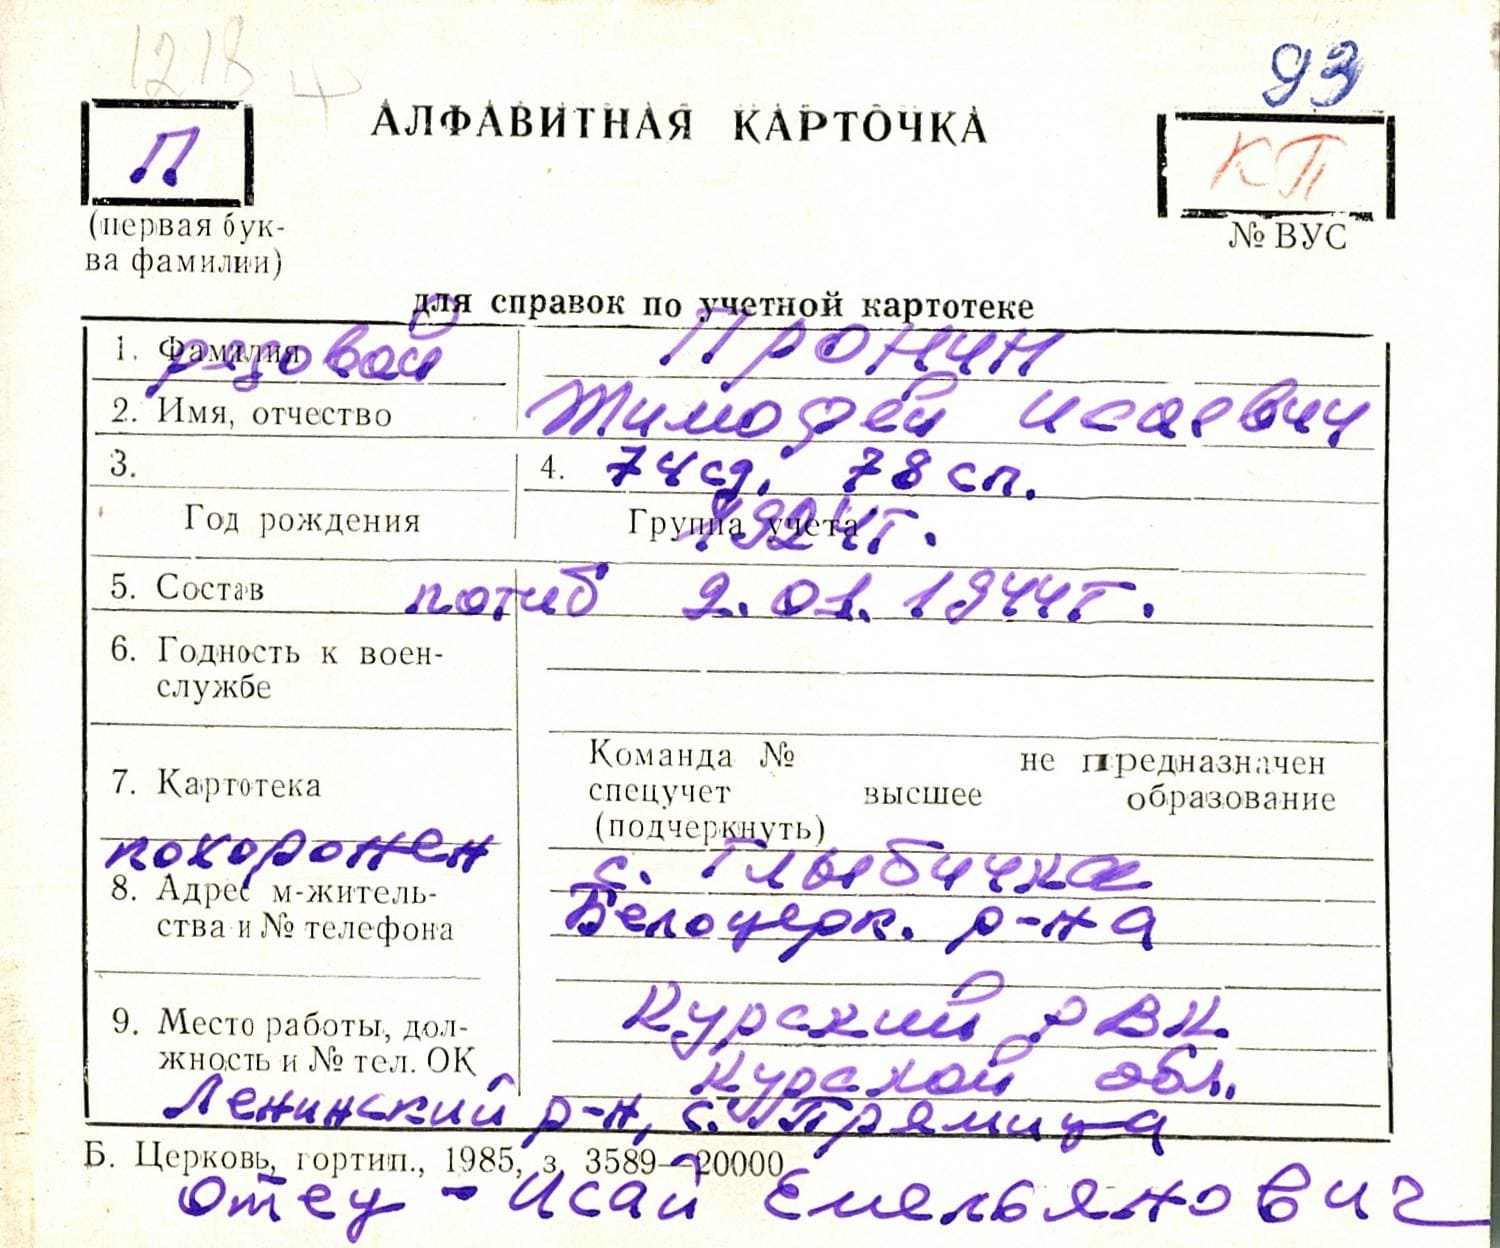 1218 ч
93
П
АЛФАВИТНАЯ КАРТОЧКА
КП
(первая бук-
ва фамилии)
№ ВУС
для справок по учетной картотеке
1. Фамилия
рядовой Пронин
2. Имя, отчество
Тимофей Исаевич
3.
4. 74 сд. 78 сп.
Год рождения
Группа учета
1924г.
5. Состав
погиб 2.01.1944г.
6. Годность к воен-
службе
7. Картотека
Команда № не предназначен
спецучет высшее образование
(подчеркнуть)
похоронен с. Глыбичка
8. Адрес м-житель-
ства и № телефона
Белоцерк. р-на
9. Место работы, дол-
жность и № тел. ОК
Курский РВК
Курской обл.
Ленинский р-н, с. Прямица
Б. Церковь, гортип., 1985, з. 3589—20000
отец - Исай Емельянович